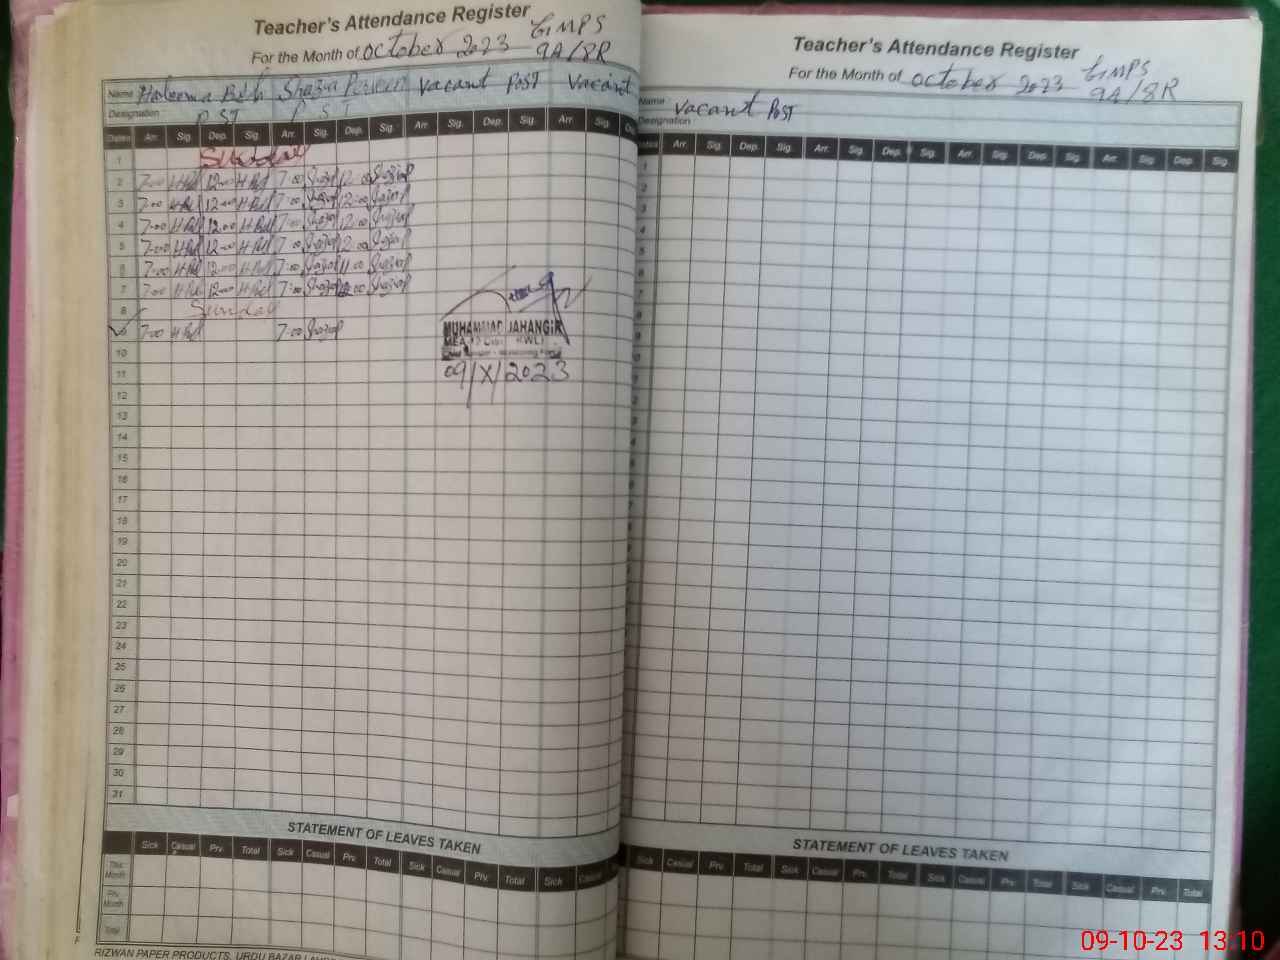 Teacher's Attendance Register GMPS
For the Month of October 2023 9A/8R
Name Haleema Bibi Shazia Parveen Vacant Post Vacant
Designation PST PST
Dates Arr. Sig. Dep. Sig. Arr. Sig. Dep. Sig. Arr. Sig. Dep. Sig. Arr. Sig.
1 Sunday
2 7:00 H.Bibi 12:00 H.Bibi 7:00 ShaziaP 12:00 ShaziaP
3 7:00 H.Bibi 12:00 H.Bibi 7:00 ShaziaP 12:00 ShaziaP
4 7:00 H.Bibi 12:00 H.Bibi 7:00 ShaziaP 12:00 ShaziaP
5 7:00 H.Bibi 12:00 H.Bibi 7:00 ShaziaP 12:00 ShaziaP
6 7:00 H.Bibi 12:00 H.Bibi 7:00 ShaziaP 11:00 ShaziaP
7 7:00 H.Bibi 12:00 H.Bibi 7:00 ShaziaP 12:00 ShaziaP
8 Sunday
9 7:00 H.Bibi 7:00 ShaziaP
MUHAMMAD JAHANGIR
MEA
09/X/2023
10
11
12
13
14
15
16
17
18
19
20
21
22
23
24
25
26
27
28
29
30
31
STATEMENT OF LEAVES TAKEN
Sick Casual Prv. Total Sick Casual Prv. Total Sick Casual Prv. Total Sick Casual
This Month
Prv. Month
Total
RIZWAN PAPER PRODUCTS, URDU BAZAR
Teacher's Attendance Register GMPS
For the Month of October 2023 9A/8R
Name Vacant Post
Designation
Arr. Sig. Dep. Sig. Arr. Sig. Dep. Sig. Arr. Sig. Dep. Sig. Arr. Sig. Dep. Sig.
1
2
3
4
5
6
7
8
9
10
STATEMENT OF LEAVES TAKEN
Sick Casual Prv. Total Sick Casual Prv. Total Sick Casual Prv. Total Sick Casual Prv. Total
09-10-23 13:10